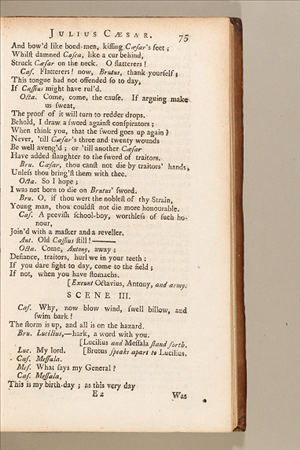 JULIUS CÆSAR. 75
And bow'd like bond-men, kissing Cæsar's feet;
Whilst damned Casca, like a cur behind,
Struck Cæsar on the neck. O flatterers!
Cas. Flatterers! now, Brutus, thank yourself;
This tongue had not offended so to day,
If Cassius might have rul'd.
Octa. Come, come, the cause. If arguing make
us sweat,
The proof of it will turn to redder drops.
Behold, I draw a sword against conspirators:
When think you, that the sword goes up again?
Never, 'till Cæsar's three and twenty wounds
Be well aveng'd; or 'till another Cæsar
Have added slaughter to the sword of traitors.
Bru. Cæsar, thou canst not die by traitors' hands,
Unless thou bring'st them with thee.
Octa. So I hope;
I was not born to die on Brutus' sword.
Bru. O, if thou wert the noblest of thy Strain,
Young man, thou couldst not die more honourable.
Cas. A peevish school-boy, worthless of such ho-
nour,
Join'd with a masker and a reveller.
Ant. Old Cassius still!———
Octa. Come, Antony, away;
Defiance, traitors, hurl we in your teeth:
If you dare fight to day, come to the field;
If not, when you have stomachs.
[Exeunt Octavius, Antony, and army.
SCENE III.
Cas. Why, now blow wind, swell billow, and
swim bark!
The storm is up, and all is on the hazard.
Bru. Lucilius,—hark, a word with you.
[Lucilius and Messala stand forth.
Luc. My lord. [Brutus speaks apart to Lucilius.
Cas. Messala.
Mes. What says my General?
Cas. Messala,
This is my birth-day; as this very day
E 2 Was